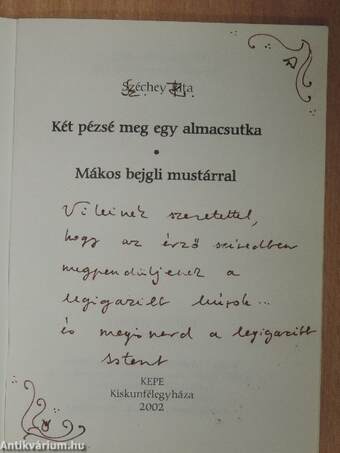 Széchey Rita
Két pézsé meg egy almacsutka
•
Mákos bejgli mustárral
szeretettel,
hogy az érző szívedben
megpendüljenek a
legigazibb húrok...
és megismerd a legigazibb
Istent
KEPE
Kiskunfélegyháza
2002
Antikvárium.hu